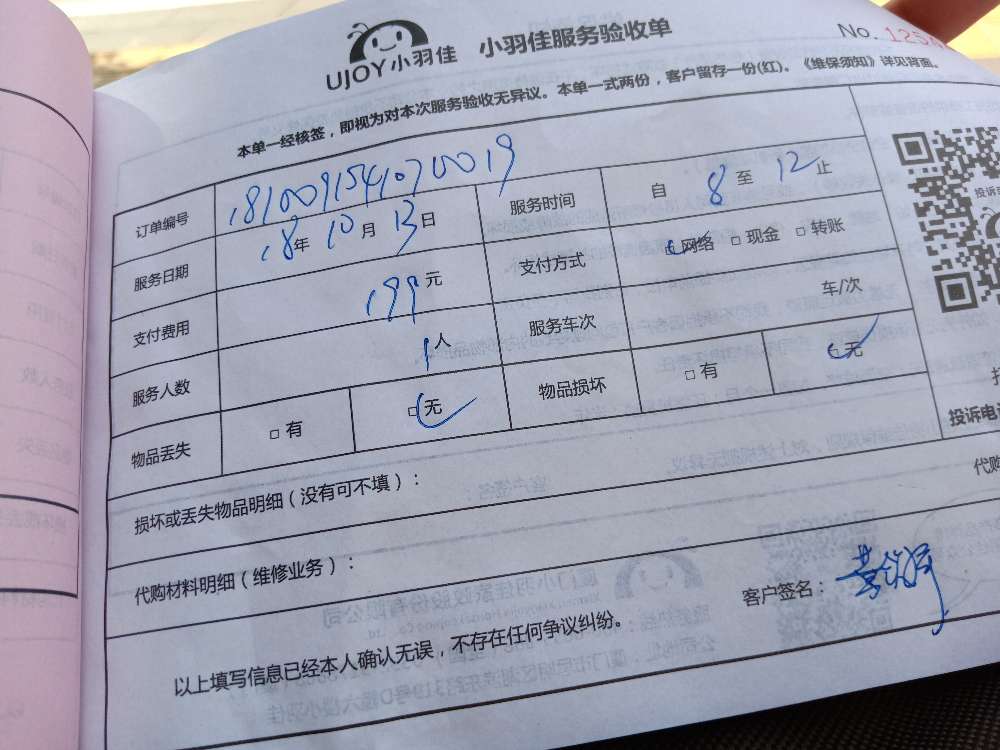 UJOY小羽佳 小羽佳服务验收单
No. 125
本单一经核签，即视为对本次服务验收无异议。本单一式两份，客户留存一份(红)。《维保须知》详见背面。
订单编号 1810091541070019 服务时间 自 8 至 12 止
服务日期 18年 10月 13日 支付方式 □网络 □现金 □转账
支付费用 199 元 服务车次 车/次
服务人数 1 人 物品损坏 □有 □无
物品丢失 □有 □无
投诉电
损坏或丢失物品明细（没有可不填）：
代购
代购材料明细（维修业务）：
客户签名：
以上填写信息已经本人确认无误，不存在任何争议纠纷。